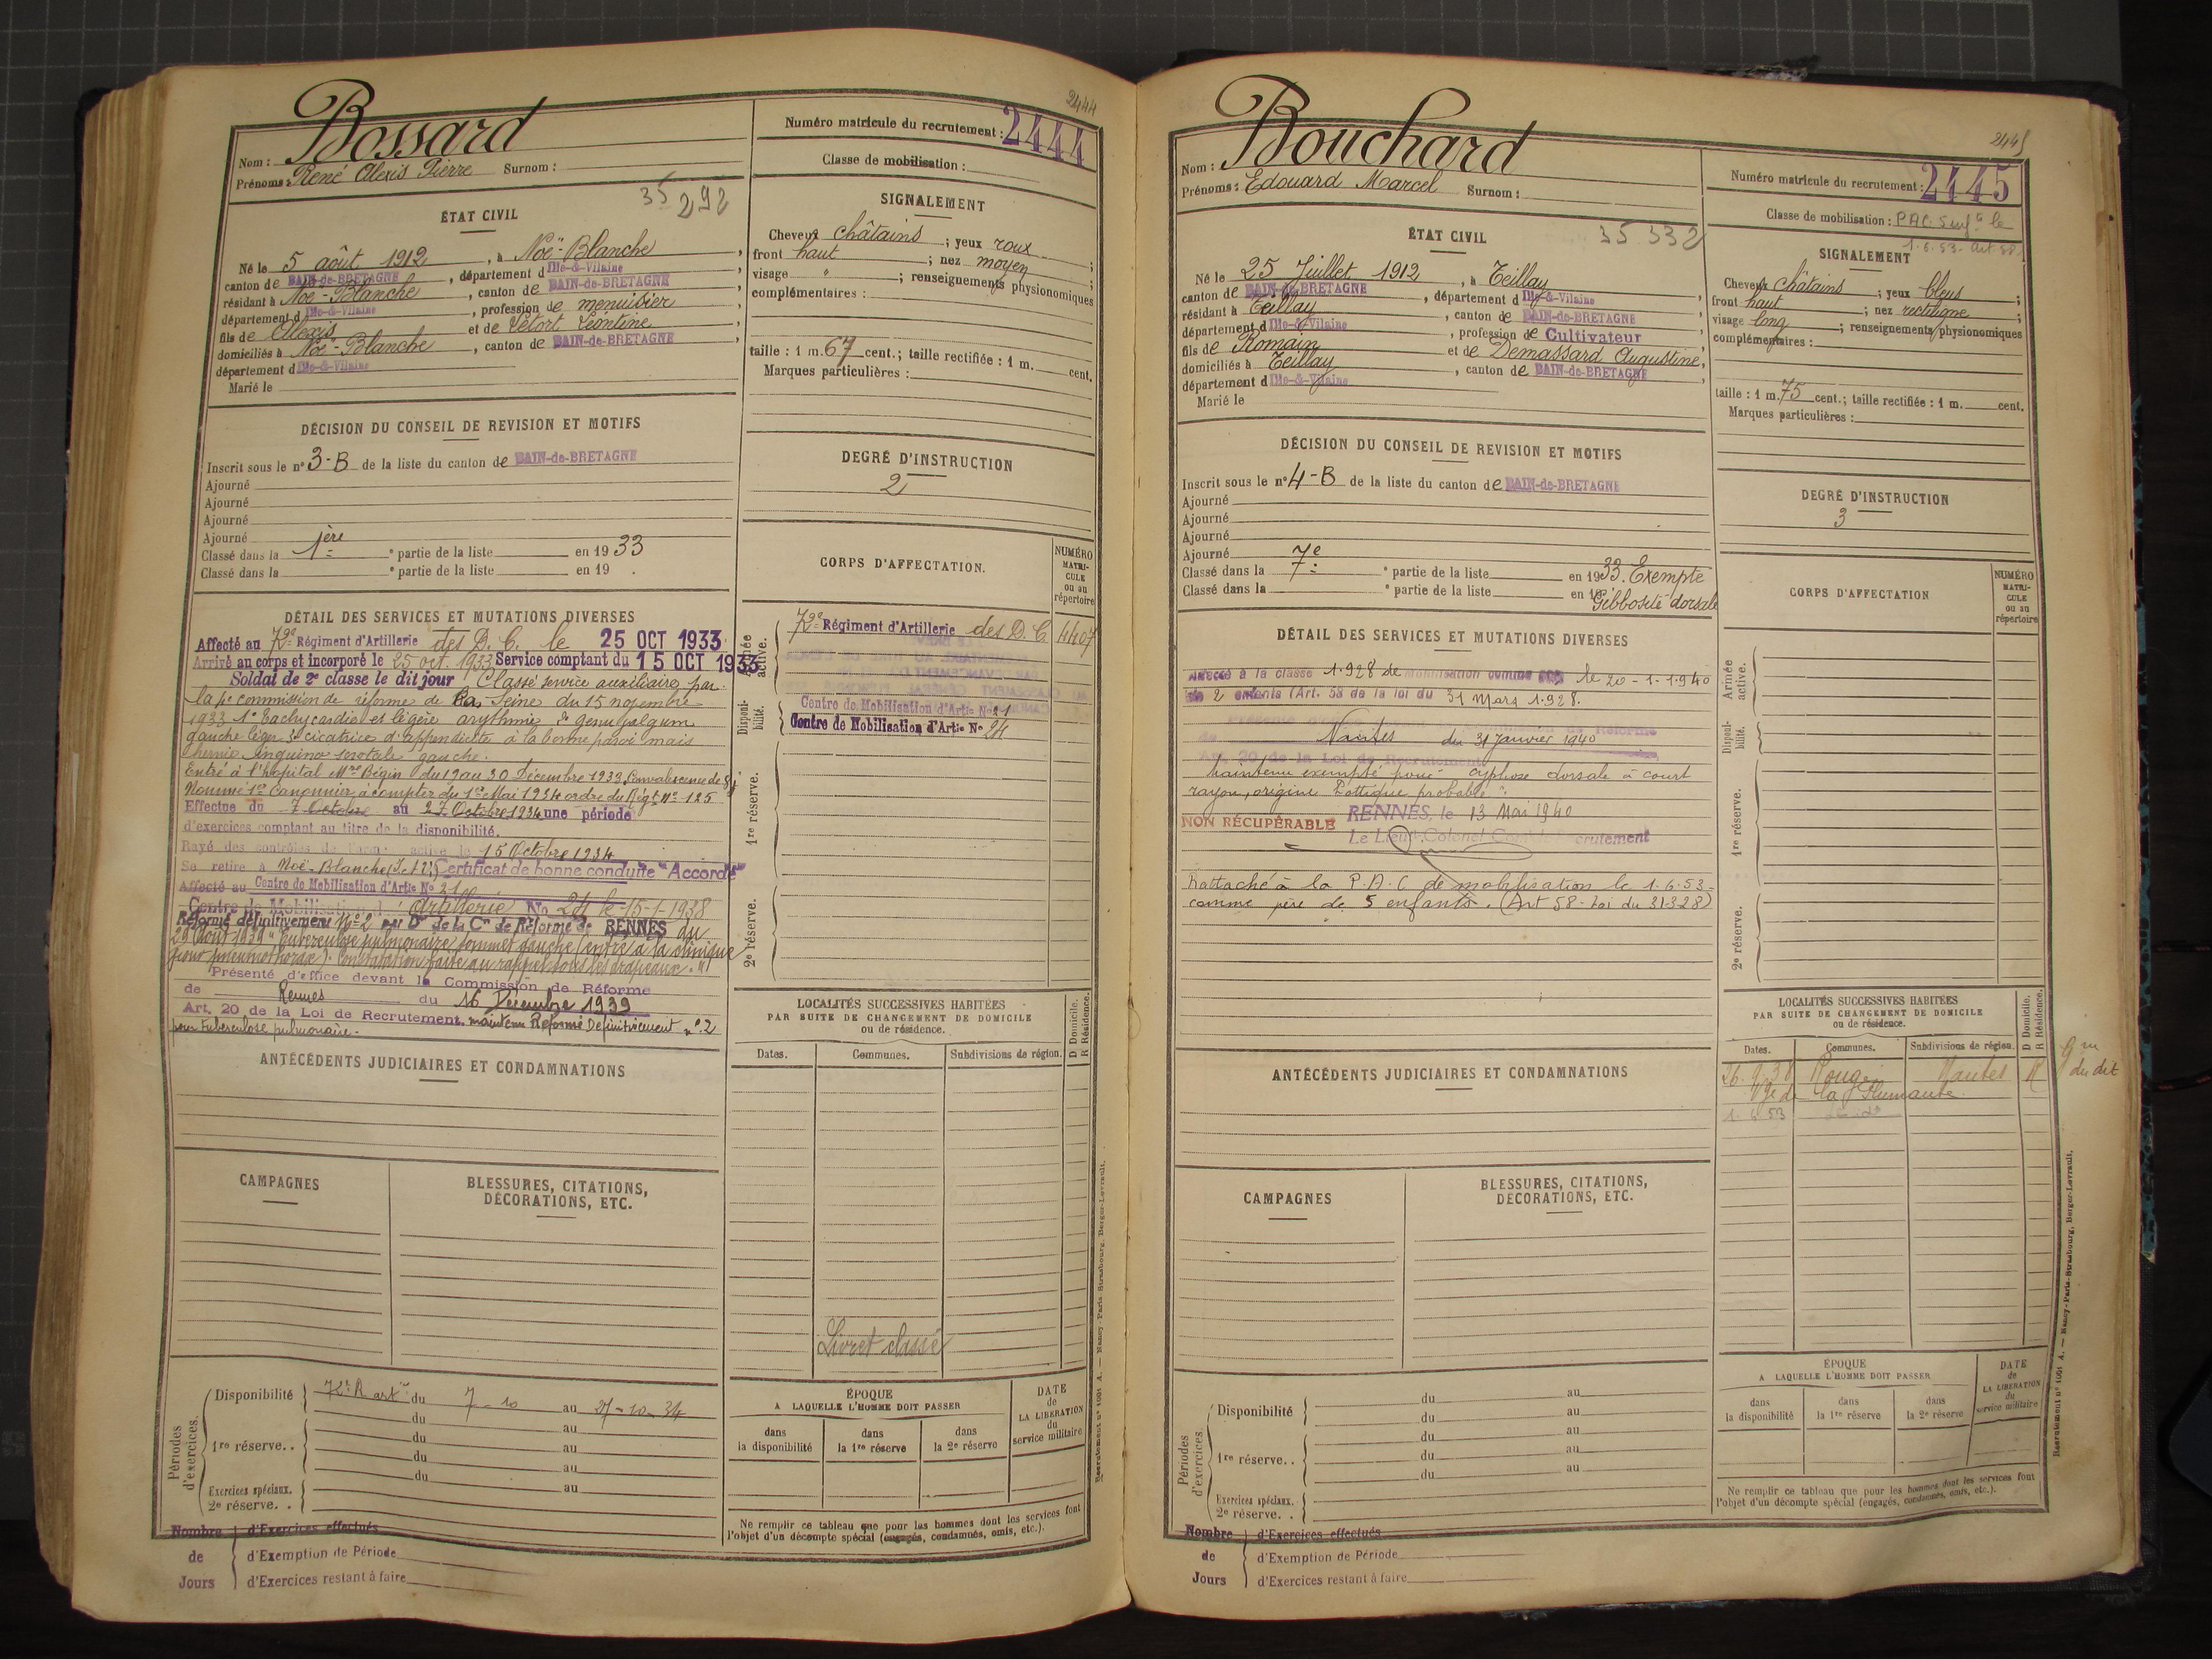 2444
Bossard
Nom :
Prénoms : René Alexis Pierre Surnom :
Numéro matricule du recrutement : 2444
Classe de mobilisation :
35 292
ÉTAT CIVIL
Né le 5 août 1912, à Noë-Blanche,
canton de BAIN-de-BRETAGNE, département d Ille-&-Vilaine,
résidant à Noë-Blanche, canton de BAIN-de-BRETAGNE,
département d Ille-&-Vilaine, profession de menuisier
fils de Alexis et de Létort Léontine,
domiciliés à Noë-Blanche, canton de BAIN-de-BRETAGNE,
département d Ille-&-Vilaine
Marié le
SIGNALEMENT
Cheveux châtains ; yeux roux ;
front haut ; nez moyen ;
visage " ; renseignements physionomiques
complémentaires :
taille : 1 m. 67 cent. ; taille rectifiée : 1 m. cent.
Marques particulières :
DÉCISION DU CONSEIL DE REVISION ET MOTIFS
Inscrit sous le n° 3-B de la liste du canton de BAIN-de-BRETAGNE
Ajourné
Ajourné
Ajourné
Ajourné
Classé dans la 1ère ° partie de la liste en 19 33
Classé dans la ° partie de la liste en 19 .
DEGRÉ D'INSTRUCTION
2
DÉTAIL DES SERVICES ET MUTATIONS DIVERSES
Affecté au 72e Régiment d'Artillerie des D. C. le 25 OCT 1933
Arrivé au corps et incorporé le 25 oct. 1933 Service comptant du 15 OCT 1933
Soldat de 2e classe le dit jour Classé service auxiliaire par
la commission de réforme de la Seine du 15 novembre
1933 1° Tachycardie et légère arythmie 2° genu valgum
gauche léger 3° cicatrice d'appendicite à la bonne paroi mais
hernie inguino scrotale gauche.
Entré à l'hôpital Mre Bégin du 19 au 20 Décembre 1933, Convalescence de
Nommé 1er Canonnier à compter du 1er Mai 1934 ordre du Régt N° 125
Effectue du 7 Octobre au 27 Octobre 1934 une période
d'exercices comptant au titre de la disponibilité.
Rayé des contrôles de l'armée active le 15 Octobre 1934
Se retire à Noë-Blanche (I. et V.) Certificat de bonne conduite "Accordé"
Affecté au Centre de Mobilisation d'Artie N° 21
Centre de Mobilisation d'Artillerie No 24 le 15-1-1938
Réformé définitivement N° 2 par Don de la Con de Réforme de RENNES du
29 Août 1939 "Tuberculose pulmonaire sommet gauche (entré à la clinique
pour pneumothorax). Constatation faite au rappel sous les drapeaux."
Présenté d'office devant la Commission de Réforme
de Rennes du 16 Décembre 1939
Art. 20 de la Loi de Recrutement. maintenu Réformé Définitivement n° 2
pour Tuberculose pulmonaire.
CORPS D'AFFECTATION.
NUMÉRO MATRICULE ou au répertoire
Armée active.
72e Régiment d'Artillerie des D. C. 4407
Disponibilité.
Centre de Mobilisation d'Artie N° 21
Centre de Mobilisation d'Artie N° 24
1re réserve.
2e réserve.
LOCALITÉS SUCCESSIVES HABITÉES
PAR SUITE DE CHANGEMENT DE DOMICILE
ou de résidence.
D Domicile. R Résidence.
Dates. Communes. Subdivisions de région.
Livret classé
ANTÉCÉDENTS JUDICIAIRES ET CONDAMNATIONS
CAMPAGNES
BLESSURES, CITATIONS,
DÉCORATIONS, ETC.
Périodes d'exercices.
Disponibilité 72e R art du 7-10 au 27-10-34
du au
1re réserve. . du au
du au
du au
Exercices spéciaux. au
2e réserve. .
ÉPOQUE
A LAQUELLE L'HOMME DOIT PASSER
dans la disponibilité
dans la 1re réserve
dans la 2e réserve
DATE de LA LIBERATION du service militaire
Ne remplir ce tableau que pour les hommes dont les services font
l'objet d'un décompte spécial (engagés, condamnés, omis, etc.).
Nombre de Jours
d'Exercices effectués
d'Exemption de Période
d'Exercices restant à faire
Recrutement n° 1091 A. — Nancy-Paris-Strasbourg, Berger-Levrault.
2445
Bouchard
Nom :
Prénoms : Edouard Marcel Surnom :
Numéro matricule du recrutement : 2445
Classe de mobilisation : PAC le
1.6.53. art 58
35 332
ÉTAT CIVIL
Né le 25 Juillet 1912, à Teillay,
canton de BAIN-de-BRETAGNE, département d Ille-&-Vilaine,
résidant à Teillay, canton de BAIN-de-BRETAGNE,
département d Ille-&-Vilaine, profession de Cultivateur
fils de Romain et de Demassard Augustine,
domiciliés à Teillay, canton de BAIN-de-BRETAGNE,
département d Ille-&-Vilaine
Marié le
SIGNALEMENT
Cheveux châtains ; yeux bleus ;
front haut ; nez rectiligne ;
visage long ; renseignements physionomiques
complémentaires :
taille : 1 m. 75 cent. ; taille rectifiée : 1 m. cent.
Marques particulières :
DÉCISION DU CONSEIL DE REVISION ET MOTIFS
Inscrit sous le n° 4-B de la liste du canton de BAIN-de-BRETAGNE
Ajourné
Ajourné
Ajourné
Ajourné
Classé dans la 7e ° partie de la liste en 19 33. Exempté
Classé dans la ° partie de la liste en 19
Gibbosité dorsale
DEGRÉ D'INSTRUCTION
3
DÉTAIL DES SERVICES ET MUTATIONS DIVERSES
Affecté à la classe 1.928 de mobilisation comme le 20-1-1940
de 2 enfants (Art. 58 de la loi du 31 Mars 1.928.
Nantes du 31 Janvier 1940
Art. 20 de la Loi de Recrutement
Maintenu exempté pour "cyphose dorsale à court
rayon, origine Pottique probable".
NON RÉCUPÉRABLE RENNES, le 13 Mai 1940
Le Lieut.-Colonel Recrutement
Rattaché à la P.A.C de mobilisation le 1.6.53
comme père de 5 enfants. (Art 58. Loi du 31.3.28)
CORPS D'AFFECTATION
NUMÉRO MATRICULE ou au répertoire
Armée active.
Disponibilité.
1re réserve.
2e réserve.
LOCALITÉS SUCCESSIVES HABITÉES
PAR SUITE DE CHANGEMENT DE DOMICILE
ou de résidence.
D Domicile. R Résidence.
Dates. Communes. Subdivisions de région.
26.9.38 Rougé Nantes R
du dit
la
1.6.53
ANTÉCÉDENTS JUDICIAIRES ET CONDAMNATIONS
CAMPAGNES
BLESSURES, CITATIONS,
DÉCORATIONS, ETC.
Périodes d'exercices.
Disponibilité du au
du au
1re réserve. . du au
du au
du au
Exercices spéciaux.
2e réserve. .
ÉPOQUE
A LAQUELLE L'HOMME DOIT PASSER
dans la disponibilité
dans la 1re réserve
dans la 2e réserve
DATE de LA LIBERATION du service militaire
Ne remplir ce tableau que pour les hommes dont les services font
l'objet d'un décompte spécial (engagés, condamnés, omis, etc.).
Nombre de Jours
d'Exercices effectués
d'Exemption de Période
d'Exercices restant à faire
Recrutement n° 1091 A. — Nancy-Paris-Strasbourg, Berger-Levrault.